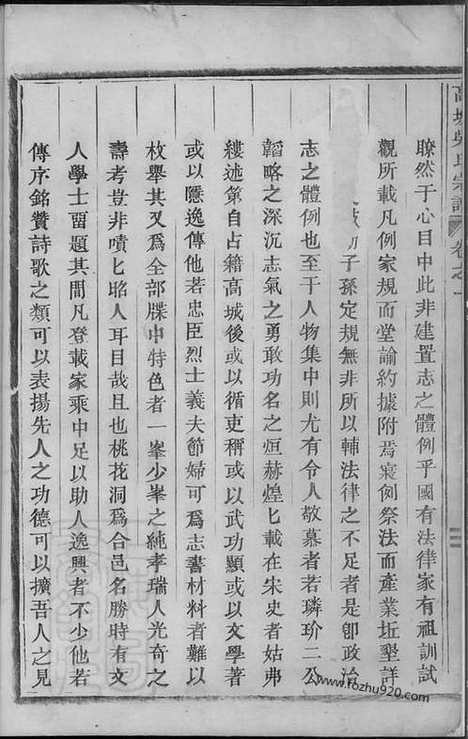 高城吳氏宗譜 卷之一
瞭然于心目中此非建置志之體例乎國有法律家有祖訓試
觀所載凡例家規而堂論約據附焉寢例祭法而產業坵墾詳
子孫定規無非所以輔法律之不足者是卽政治
志之體例也至于人物集中則尤有令人敬慕者若璘玠二公
韜略之深沉志氣之勇敢功名之烜赫煌匕載在宋史者姑弗
縷述第自占籍高城後或以循吏稱或以武功顯或以文學著
或以隱逸傳他若忠臣烈士義夫節婦可爲志書材料者難以
枚舉其又爲全部牒中特色者一峯少峯之純孝瑞人光奇之
壽考豈非嘖匕昭人耳目哉且也桃花洞爲合邑名勝時有文
人學士畱題其間凡登載家乘中足以助人逸興者不少他若
傳序銘贊詩歌之類可以表揚先人之功德可以擴吾人之見
www.fozhu920.com